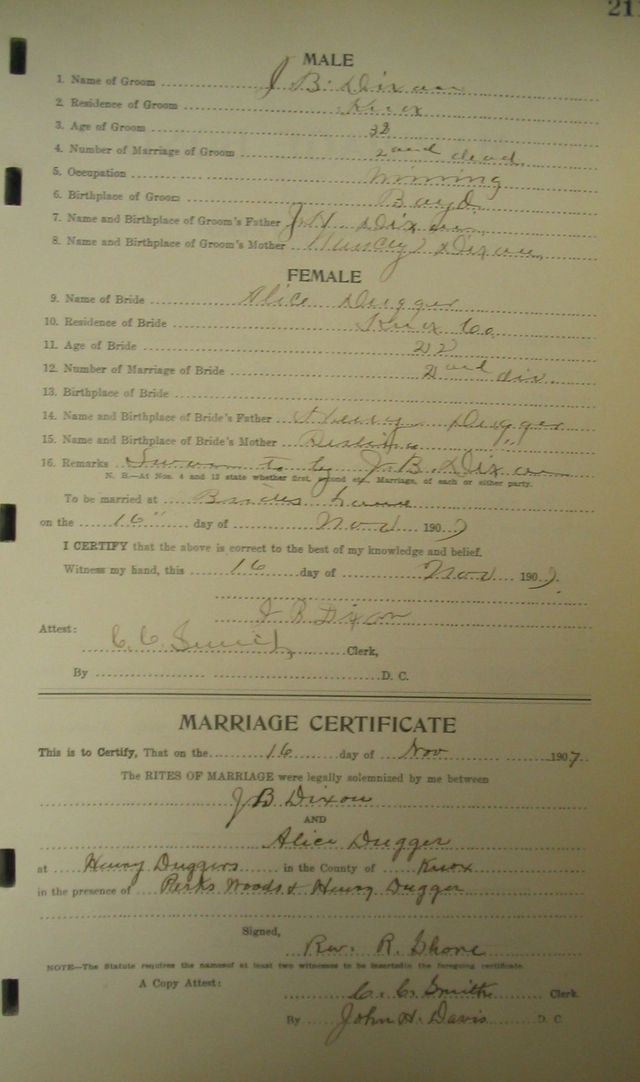 211
MALE
1. Name of Groom J B. Dixon
2. Residence of Groom Knox
3. Age of Groom 38
4. Number of Marriage of Groom 2nd dead
5. Occupation Mining
6. Birthplace of Groom Boyd
7. Name and Birthplace of Groom's Father J. H. Dixon
8. Name and Birthplace of Groom's Mother Dixon
FEMALE
9. Name of Bride Alice Dugger
10. Residence of Bride Knox Co.
11. Age of Bride 22
12. Number of Marriage of Bride 2nd div.
13. Birthplace of Bride
14. Name and Birthplace of Bride's Father Henry Dugger
15. Name and Birthplace of Bride's Mother "
16. Remarks Sworn to by J. B. Dixon
N. B.—At Nos. 4 and 12 state whether first, second etc. Marriage, of each or either party.
To be married at Brides home
on the 16" day of Nov 1907
I CERTIFY that the above is correct to the best of my knowledge and belief.
Witness my hand, this 16 day of Nov 1907.
J B Dixon
Attest:
C. C. Smith Clerk,
By D. C.
MARRIAGE CERTIFICATE
This is to Certify, That on the 16 day of Nov 1907.
The RITES OF MARRIAGE were legally solemnized by me between
J B Dixon
AND
Alice Dugger
at Henry Duggers in the County of Knox
in the presence of Woods & Henry Dugger
Signed,
Rev. R.
NOTE—The Statute requires the namesof at least two witnesses to be insertedin the foregoing certificate.
A Copy Attest: C. C. Smith Clerk.
By John H. Davis D. C